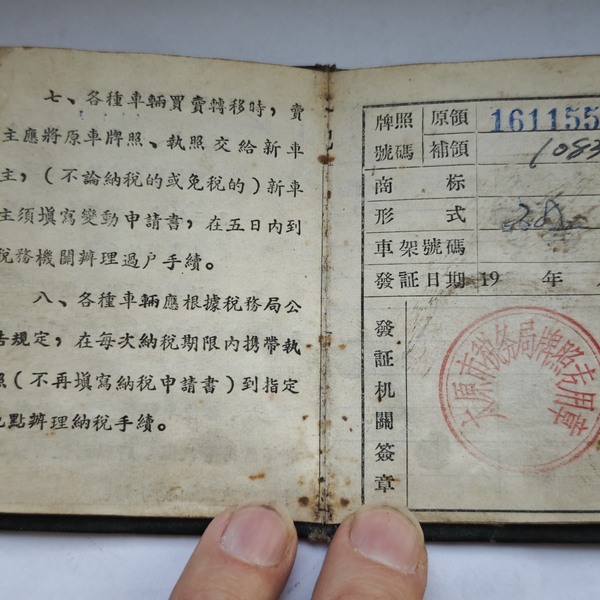 七、各種車輛買賣轉移時，賣
主應將原車牌照、執照交給新車
主，(不論納税的或免税的)新車
主須填寫變動申請書，在五日內到
税務機關辦理過户手續。
八、各種車輛應根據税務局公
告規定，在每次納税期限内携帶執
照(不再填寫納税申請書)到指定
地點辦理納税手續。
牌照號碼
原領 161155
補領 1083
商标
形式 28
車架號碼
發証日期 19 年
發証机關簽章
太原市税务局牌照专用章